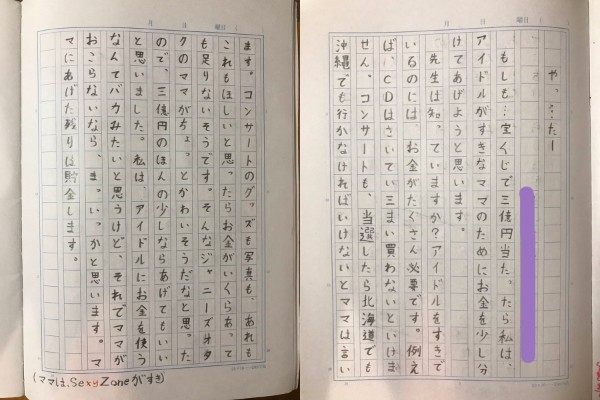 月 日 曜日 ( )
やっ…たー
もしも…宝くじで三億円当たったら私は、
アイドルがすきなママのためにお金を少し分
けてあげようと思います。
先生は知っていますか?アイドルをすきで
いるのには、お金がたくさん必要です。例え
ば、CDはさいてい三まい買わないといけま
せん。コンサートも、当選したら北海道でも
沖縄でも行かなければいけないとママは言い
月 日 曜日 ( )
ます。コンサートのグッズも写真も、あれも
これもほしいと思ったらお金がいくらあって
も足りないそうです。そんなジャニーズオタ
クのママがちょっとかわいそうだなと思った
ので、三億円のほんの少しならあげてもいい
と思いました。私は、アイドルにお金を使う
なんてバカみたいと思うけど、それでママが
おこらないなら、ま、いっかと思います。マ
マにあげた残りは貯金します。
(ママは、Sexy Zoneがすき)